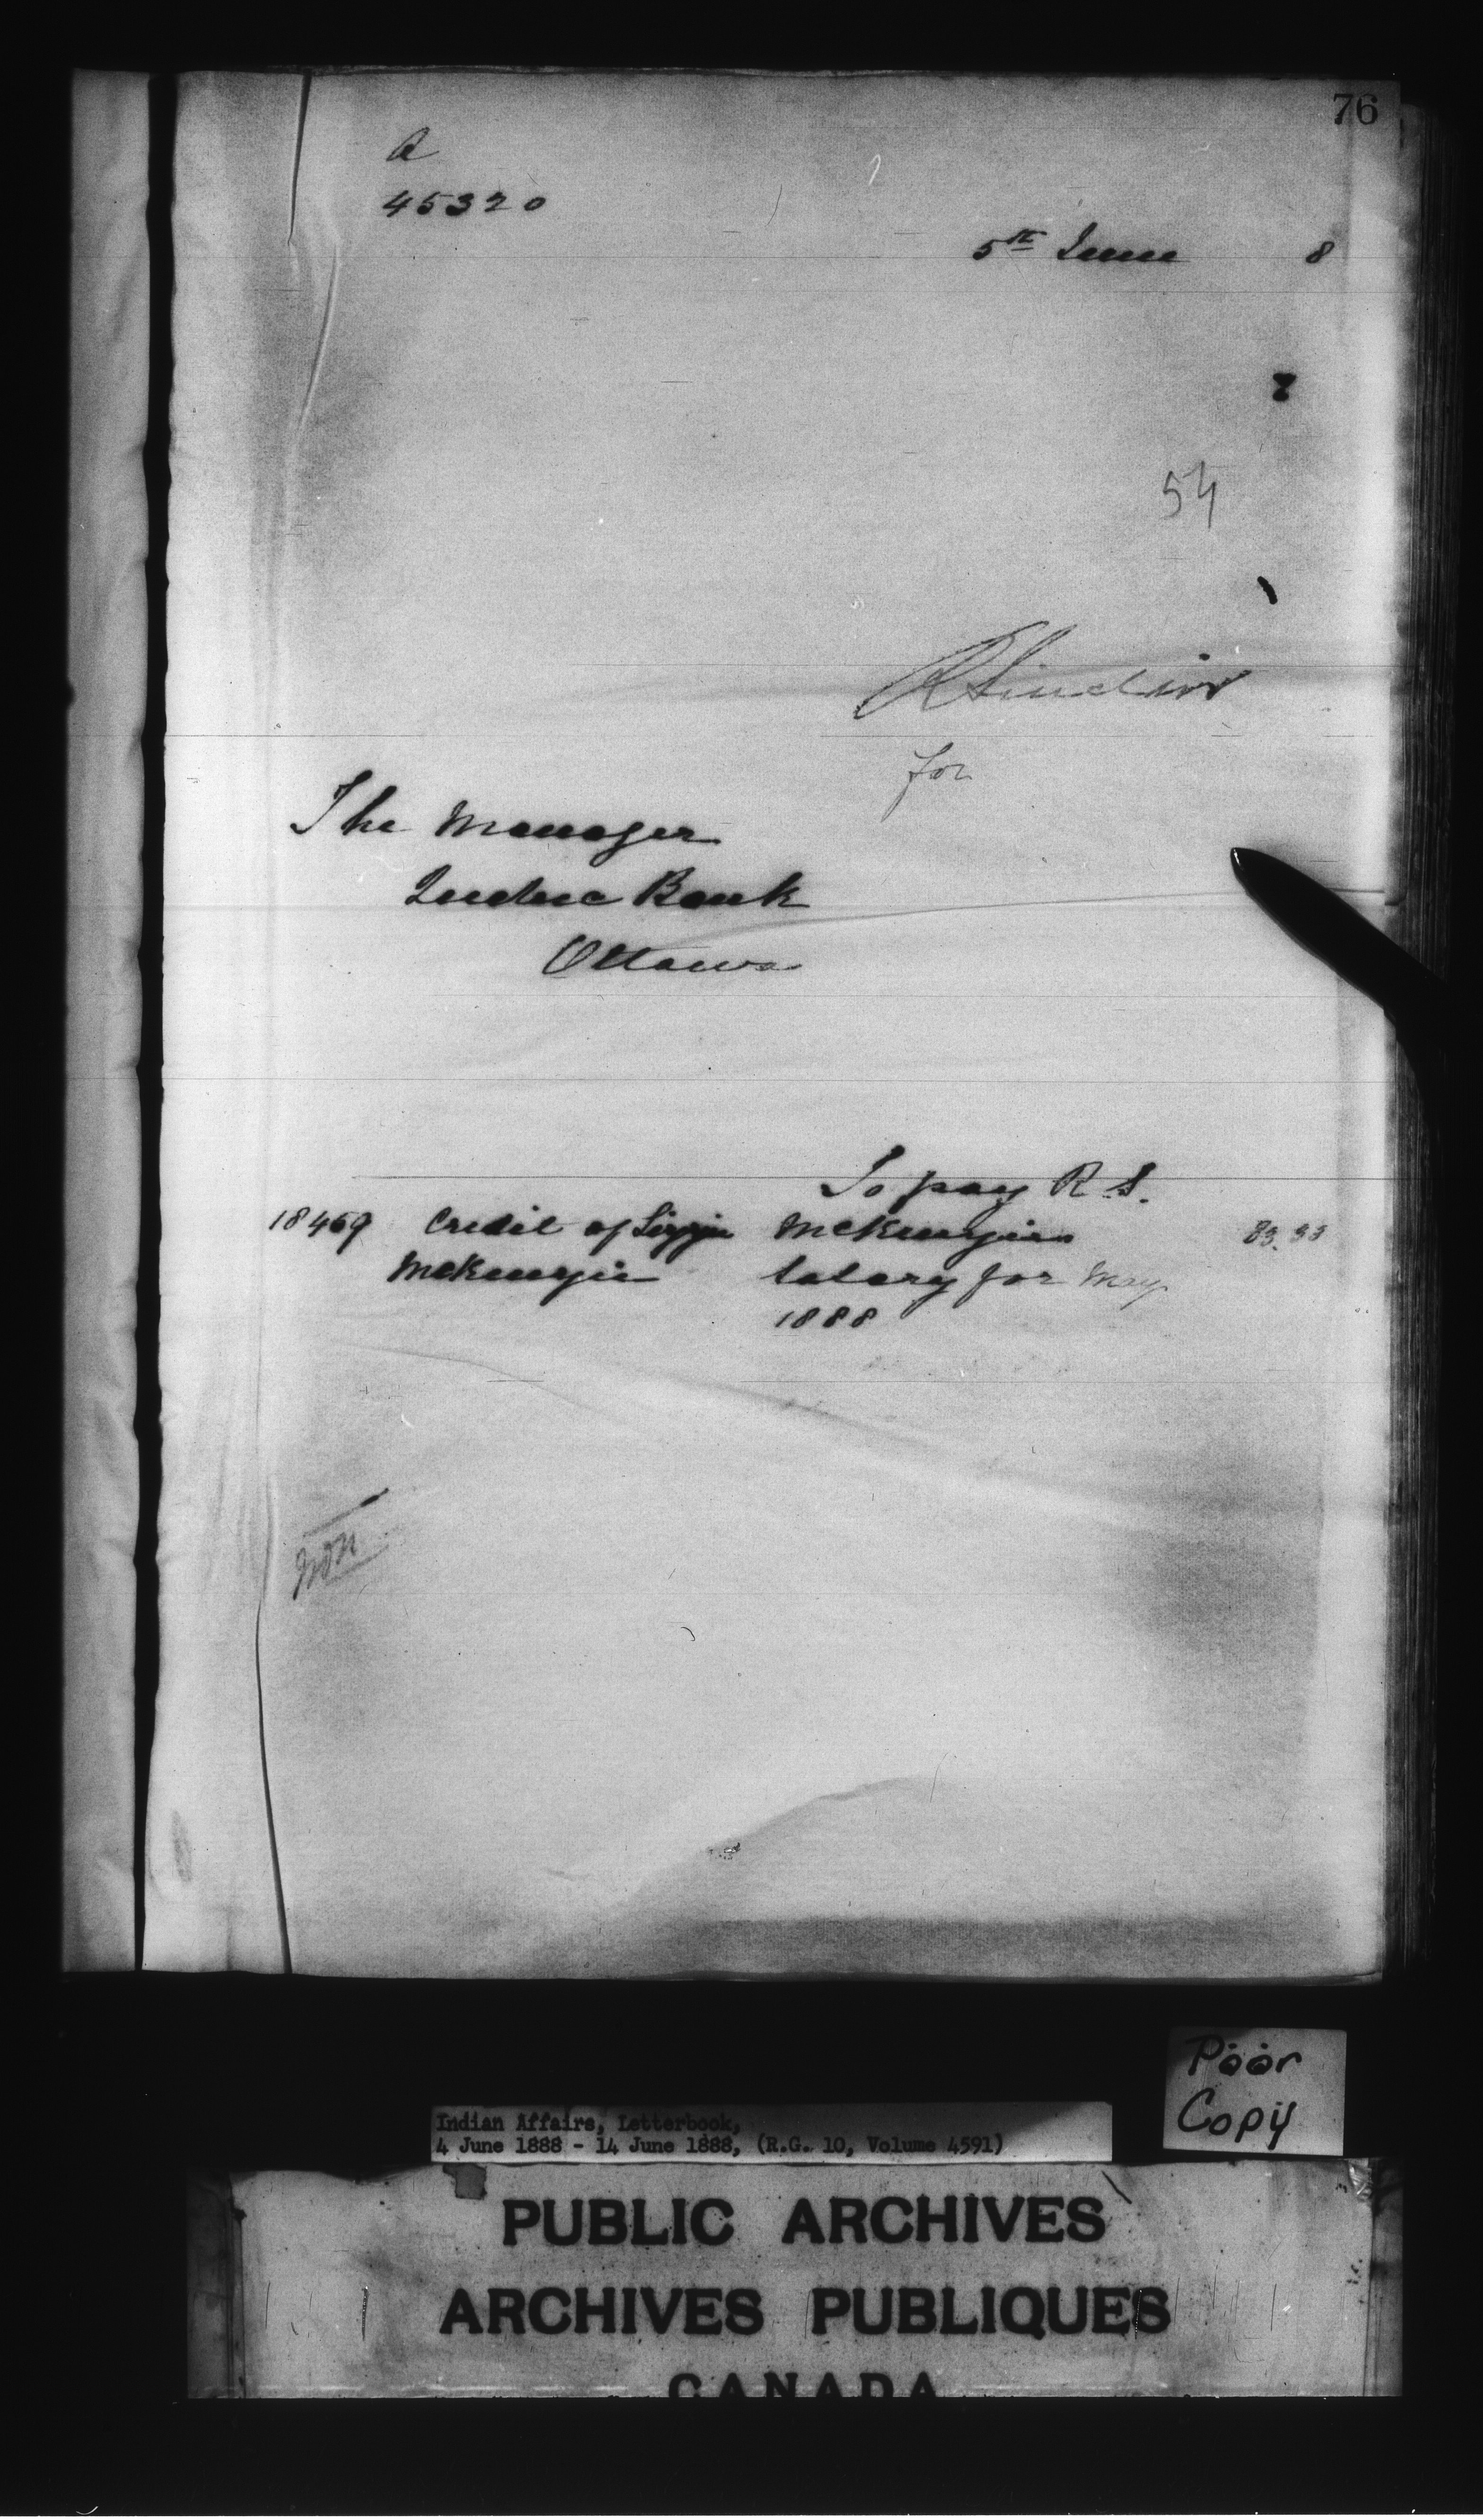 76
A
45320
5th June 8
54
R Sinclair
for
The Manager
Quebec Bank
Ottawa
To pay R. S.
18469 Credit of Lizzie McKenzie's 83.33
McKenzie Salary for May
1888
Poor
Copy
Indian Affairs, Letterbook,
4 June 1888 - 14 June 1888, (R.G. 10, Volume 4591)
PUBLIC ARCHIVES
ARCHIVES PUBLIQUES
CANADA